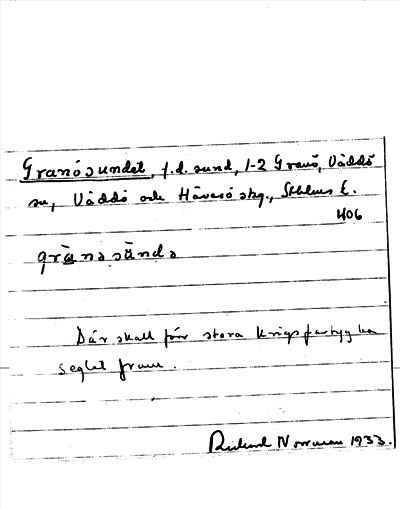 Granösundet, f.d. sund, 1-2 Granö, Väddö
sn, Väddö och Häverö skg., Sthlms l.
406
gränssùndə
Där skall förr stora krigsfartyg ha
seglat fram.
Rickard Norrman 1933.